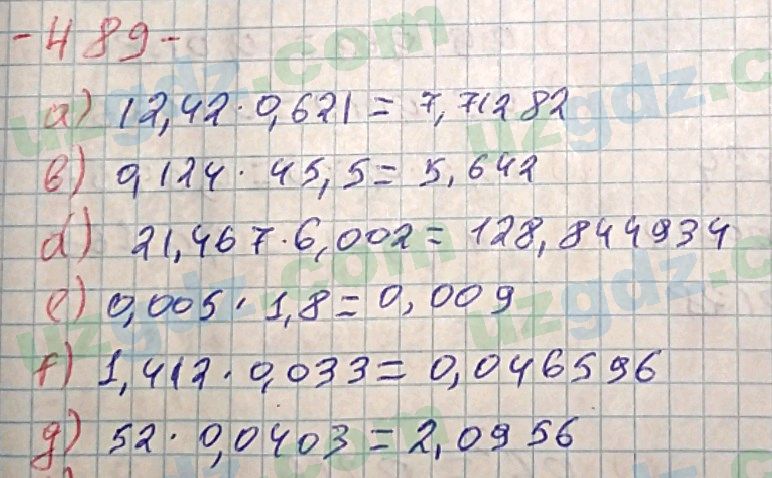 -489-
a) 12,42·0,621=7,71282
b) 0,124·45,5=5,642
d) 21,467·6,002=128,844934
e) 0,005·1,8=0,009
f) 1,412·0,033=0,046596
g) 52·0,0403=2,0956
uzgdz.com